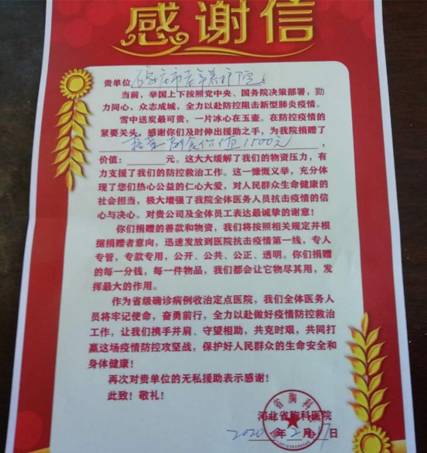 感谢信
贵单位
当前，举国上下按照党中央、国务院决策部署，勠
力同心、众志成城，全力以赴防控阻击新型肺炎疫情。
雪中送炭最可贵，一片冰心在玉壶。在防控疫情的
紧要关头，感谢你们及时伸出援助之手，为我院捐赠了
价值1500元，
价值：元。这大大缓解了我们的物资压力，有
力支援了我们的防控救治工作。这一慷慨义举，充分体
现了您们热心公益的仁心大爱，对人民群众生命健康的
社会担当，极大增强了我院全体医务人员抗击疫情的信
心与决心。对贵公司及全体员工表达最诚挚的谢意！
你们捐赠的善款和物资，我们将按照相关规定并根
据捐赠者意向，迅速发放到医院抗击疫情第一线，专人
专管，专款专用，公开、公共、公正、透明。你们捐赠
的每一分钱，每一件物品，我们都会让它物尽其用，发
挥最大的作用。
作为省级确诊病例收治定点医院，我们全体医务人
员将牢记使命，奋勇前行，全力以赴做好疫情防控救治
工作，让我们携手并肩、守望相助，共克时艰，共同打
赢这场疫情防控攻坚战，保护好人民群众的生命安全和
身体健康！
再次对贵单位的无私援助表示感谢！
此致！敬礼！
河北省胸科医院
2020年2月7日